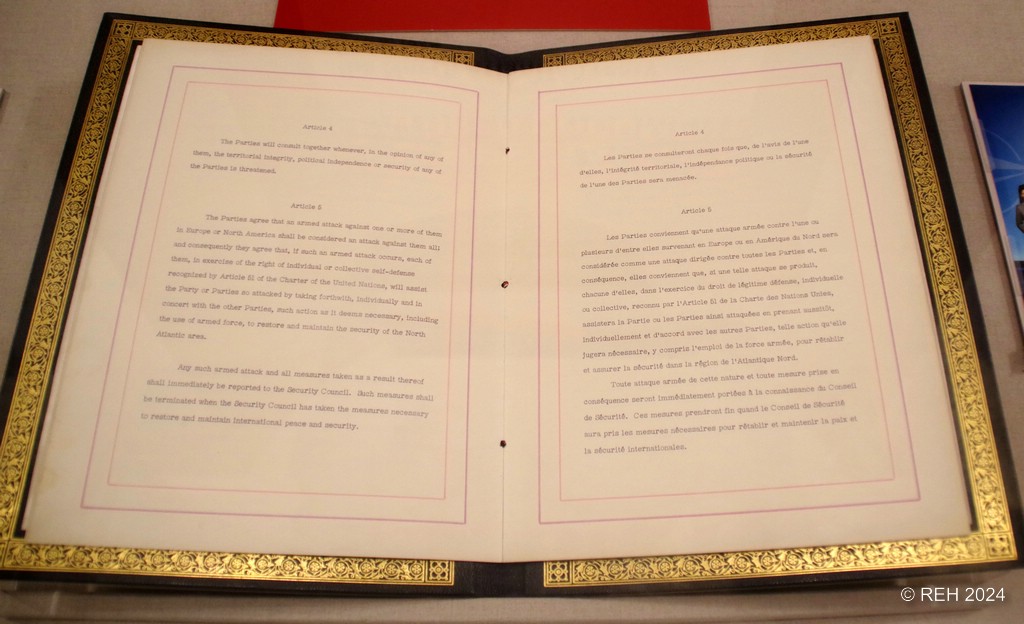 Article 4
The Parties will consult together whenever, in the opinion of any of
them, the territorial integrity, political independence or security of any of
the Parties is threatened.
Article 5
The Parties agree that an armed attack against one or more of them
in Europe or North America shall be considered an attack against them all;
and consequently they agree that, if such an armed attack occurs, each of
them, in exercise of the right of individual or collective self-defense
recognized by Article 51 of the Charter of the United Nations, will assist
the Party or Parties so attacked by taking forthwith, individually and in
concert with the other Parties, such action as it deems necessary, including
the use of armed force, to restore and maintain the security of the North
Atlantic area.
Any such armed attack and all measures taken as a result thereof
shall immediately be reported to the Security Council. Such measures shall
be terminated when the Security Council has taken the measures necessary
to restore and maintain international peace and security.
Article 4
Les Parties se consulteront chaque fois que, de l'avis de l'une
d'elles, l'intégrité territoriale, l'indépendance politique ou la sécurité
de l'une des Parties sera menacée.
Article 5
Les Parties conviennent qu'une attaque armée contre l'une ou
plusieurs d'entre elles survenant en Europe ou en Amérique du Nord sera
considérée comme une attaque dirigée contre toutes les Parties et, en
conséquence, elles conviennent que, si une telle attaque se produit,
chacune d'elles, dans l'exercice du droit de légitime défense, individuelle
ou collective, reconnu par l'Article 51 de la Charte des Nations Unies,
assistera la Partie ou les Parties ainsi attaquées en prenant aussitôt,
individuellement et d'accord avec les autres Parties, telle action qu'elle
jugera nécessaire, y compris l'emploi de la force armée, pour rétablir
et assurer la sécurité dans la région de l'Atlantique Nord.
Toute attaque armée de cette nature et toute mesure prise en
conséquence seront immédiatement portées à la connaissance du Conseil
de Sécurité. Ces mesures prendront fin quand le Conseil de Sécurité
aura pris les mesures nécessaires pour rétablir et maintenir la paix et
la sécurité internationales.
© REH 2024